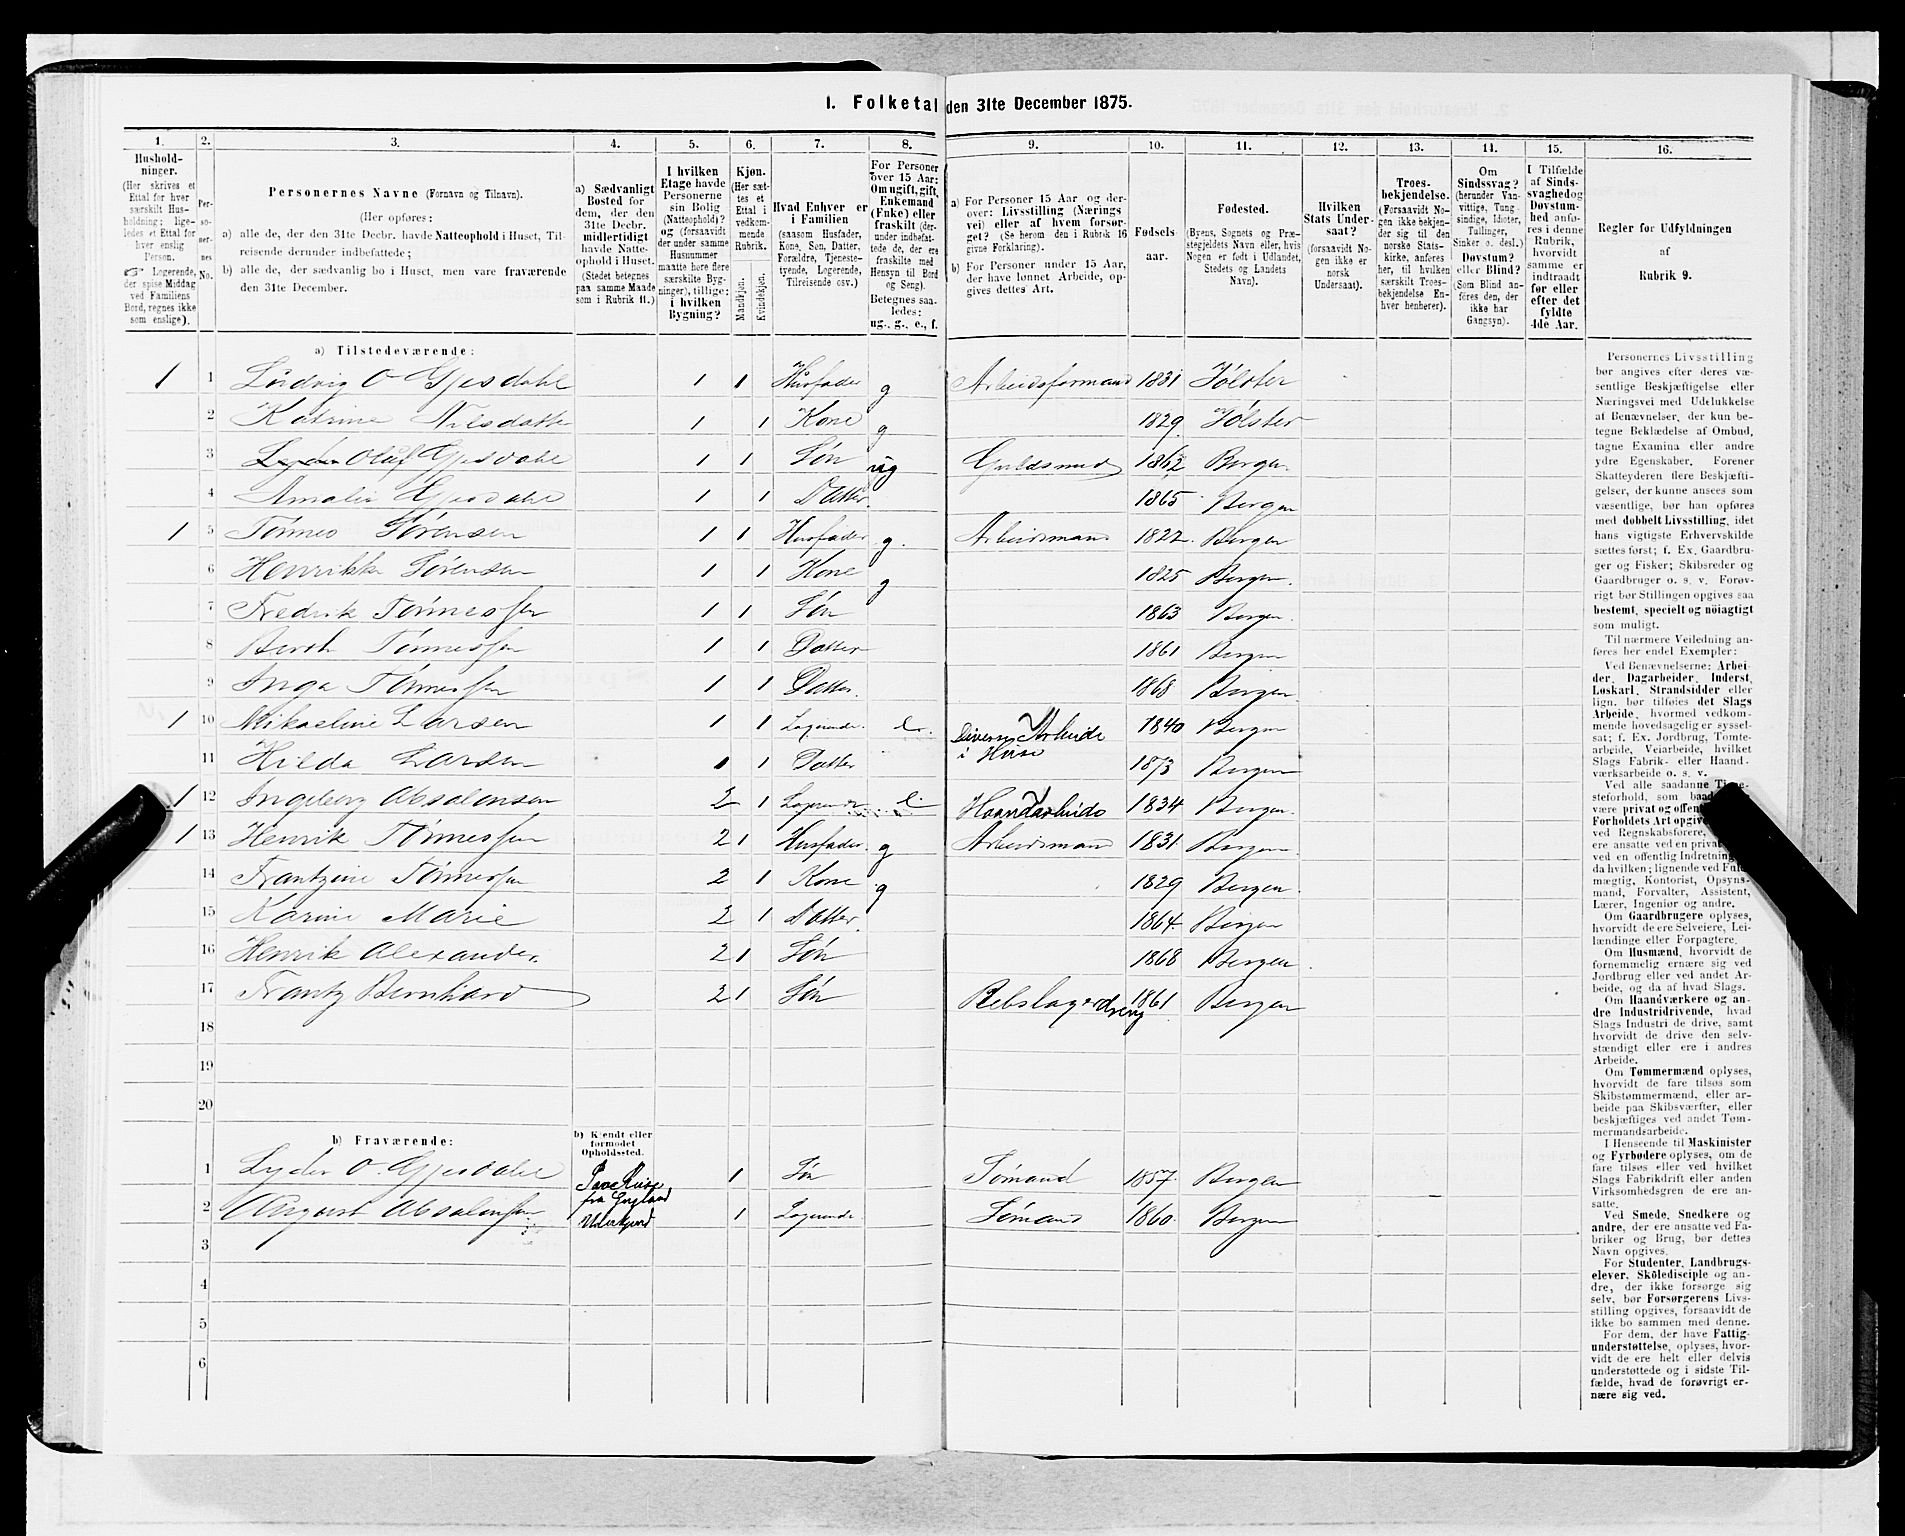 1. Folketal den 31te December 1875.
1. 2. 3. 4. 5. 6. 7. 8. 9. 10. 11. 12. 13. 14. 15. 16.
Hushold-
ninger.
(Her skrives et
Ettal for hver
særskilt Hus-
holdning; lige-
ledes et Ettal for
hver enslig
Person.
☞ Logerende,
der spise Middag
ved Familiens
Bord, regnes ikke
som enslige).
Per-
so-
ner-
nes
No.
Personernes Navne (Fornavn og Tilnavn).
(Her opføres:
a) alle de, der den 31te Decbr. havde Natteophold i Huset, Til-
reisende derunder indbefattede;
b) alle de, der sædvanlig bo i Huset, men vare fraværende
den 31te December.
a) Sædvanligt
Bosted for
dem, der den
31te Decbr.
midlertidigt
havde Natte-
ophold i Huset.
(Stedet betegnes
paa samme Maade
som i Rubrik 11.)
I hvilken
Etage havde
Personerne
sin Bolig
(Natteophold)?
og (forsaavidt
der under samme
Husnummer
maatte høre flere
særskilte Byg-
ninger), tillige:
i hvilken
Bygning?
Kjøn.
(Her sæt-
tes et
Ettal i
vedkom-
mende
Rubrik.
Mandkjøn.
Kvindekjøn.
Hvad Enhver er
i Familien
(saasom Husfader,
Kone, Søn, Datter,
Forældre, Tjeneste-
tyende, Logerende,
Tilreisende osv.)
For Personer
over 15 Aar:
Om ugift, gift,
Enkemand
(Enke) eller
fraskilt (der-
under indbefat-
tede de, der ere
fraskilte med
Hensyn til Bord
og Seng).
Betegnes saa-
ledes:
ug., g., e., f.
a) For Personer 15 Aar og der-
over: Livsstilling (Nærings
vei) eller af hvem forsør-
get? (Se herom den i Rubrik 16
givne Forklaring).
b) For Personer under 15 Aar,
der have lønnet Arbeide, op-
gives dettes Art.
Fødsels-
aar.
Fødested.
(Byens, Sognets og Præ-
stegjeldets Navn eller, hvis
Nogen er født i Udlandet,
Stedets og Landets
Navn).
Hvilken
Stats Under-
saat?
(forsaavidt No-
gen ikke er
norsk
Undersaat).
Troes-
bekjendelse.
(Forsaavidt No-
gen ikke bekjen-
der sig til den
norske Stats-
kirke, anføres
her, til hvilken
særskilt Troes-
bekjendelse En-
hver henhører).
Om
Sindssvag?
(herunder Van-
vittige, Tung-
sindige, Idioter,
Tullinger,
Sinker o. desl.)
Døvstum?
eller Blind?
(Som Blind an-
føres den, der
ikke har
Gangsyn).
I Tilfælde
af Sinds-
svaghed og
Døvstum-
hed anfø-
res i denne
Rubrik,
hvorvidt
samme er
indtraadt
før eller
efter det
fyldte
4de Aar.
Regler for Udfyldningen
af
Rubrik 9.
a) Tilstedeværende:
1 1 Lúdvig O Gjesdahl 1 1 Húsfader g Arbeidsformand 1831 Jölster
2 Katrine Nilsdatter 1 1 Kone g 1829 Jölster
3 Lyder Oluf Gjesdahl 1 1 Sön ug Guldsmed 1862 Bergen
4 Amalie Gjesdahl 1 1 Datter 1865 Bergen
1 5 Tönnes Sörensen 1 1 Husfader g. Arbeidsmand 1822 Bergen
6 Henrikke Sörensen 1 1 Kone g 1825 Bergen.
7 Fredrik Tönnessen 1 1 Sön 1863 Bergen.
8 Berth Tönnessen 1 1 Datter 1861 Bergen
9 Inga Tönnessen 1 1 Datter. 1868 Bergen
1 10 Mikaeline Larsen 1 1 Logerende. e. Diverse Arbeide i Húse 1840 Bergen
11 Hilda Larsen 1 1 Datter 1873 Bergen
1 12 Ingeborg Absalonsen 2 1 Logerende e. Haandarbeide 1834 Bergen.
1 13 Henrik Tönnessen 2 1 Husfader. g Arbeidsmand 1831 Bergen.
14 Frantzine Tönnessen 2 1 Kone g 1829 Bergen.
15 Karine Marie 2 1 Datter. 1864 Bergen
16 Henrik Alexander. 2 1 Sön 1868 Bergen.
17 Frantz Bernhard 2 1 Sön Rebslagerdreng 1861 Bergen
18
19
20
b) Fraværende:
b) Kjendt eller
formodet
Opholdssted.
1 Lyder O. Gjesdahl Paa Reise fra England 1 Sön Sömand 1857 Bergen
2 August Absalonsen Ubekjend 1 Logerende Sömand 1860 Bergen
3
4
5
6
Personernes Livsstilling
bør angives efter deres væ-
sentlige Beskjæftigelse eller
Næringsvei med Udelukkelse
af Benævnelser, der kun be-
tegne Beklædelse af Ombud,
tagne Examina eller andre
ydre Egenskaber. Forener
Skatteyderen flere Beskjæfti-
gelser, der kunne ansees som
væsentlige, bør han opføres
med dobbelt Livsstilling, idet
hans vigtigste Erhvervskilde
sættes først; f. Ex. Gaardbru-
ger og Fisker; Skibsreder og
Gaardbruger o. s. v. Forøv-
rigt bør Stillingen opgives saa
bestemt, specielt og nöiagtigt
som muligt.
Til nærmere Veiledning an-
føres her endel Exempler:
Ved Benævnelserne: Arbei-
der, Dagarbeider, Inderst,
Løskarl, Strandsidder eller
lign. bør tilføies det Slags
Arbeide, hvormed vedkom-
mende hovedsagelig er syssel-
sat; f. Ex. Jordbrug, Tomte-
arbeide, Veiarbeide, hvilket
Slags Fabrik- eller Haand-
værksarbeide o. s. v.
Ved alle saadanne Tjene-
steforhold, som baade
være privat og offent
Forholdets Art opgiv
ved Regnskabsførere,
ere ansatte ved en privat
ved en offentlig Indretning
da hvilken; lignende ved Fuld-
mægtig, Kontorist, Opsyns-
mand, Forvalter, Assistent,
Lærer, Ingeniør og andre.
Om Gaardbrugere oplyses,
hvorvidt de ere Selveiere, Lei-
lændinge eller Forpagtere.
Om Husmænd, hvorvidt de
fornemmelig ernære sig ved
Jordbrug eller ved andet Ar-
beide, og da af hvad Slags.
Om Haandværkere og an-
dre Industridrivende, hvad
Slags Industri de drive, samt
hvorvidt de drive den selv-
stændigt eller ere i andres
Arbeide.
Om Tømmermænd oplyses,
hvorvidt de fare tilsøs som
Skibstømmermænd, eller ar-
beide paa Skibsværfter, eller
beskjæftiges ved andet Tøm-
mermandsarbeide.
I Henseende til Maskinister
og Fyrbødere oplyses, om de
fare tilsøs eller ved hvilket
Slags Fabrikdrift eller anden
Virksomhedsgren de ere an-
satte.
Ved Smede, Snedkere og
andre, der ere ansatte ved Fa-
briker og Brug, bør dettes
Navn opgives.
For Studenter, Landbrugs-
elever, Skoledisciple og an-
dre, der ikke forsørge sig
selv, bør Forsørgerens Livs-
stilling opgives, forsaavidt de
ikke bo sammen med denne.
For dem, der have Fattig-
understøttelse, oplyses, hvor-
vidt de ere helt eller delvis
understøttede og i sidste Til-
fælde, hvad de forøvrigt er-
nære sig ved.